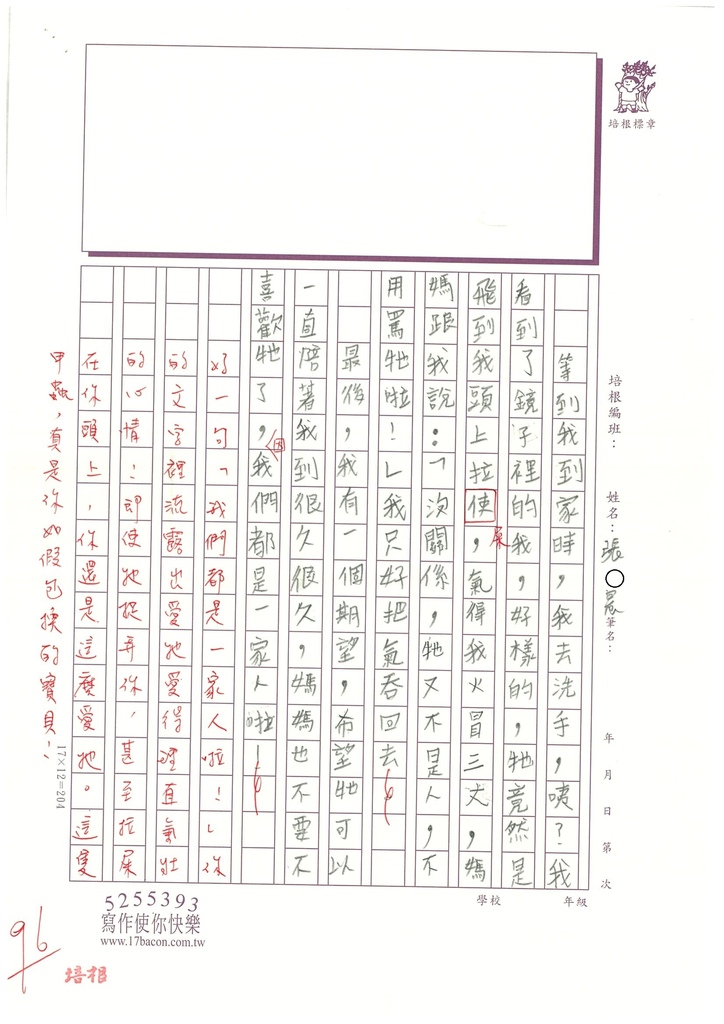 培根標章
培根編班：
姓名：張○晨
筆名：
年 月 日 第 次
學校
年級
等到我到家時，我去洗手，咦？我
看到了鏡子裡的我，好樣的，牠竟然是
飛到我頭上拉使，氣得我火冒三丈，媽
屎
媽跟我說：「沒關係，牠又不是人，不
用罵牠啦！」我只好把氣吞回去。
最後，我有一個期望，希望牠可以
一直陪著我到很久很久，媽媽也不要不
喜歡牠了，我們都是一家人啦！
因
好一句「我們都是一家人啦！」你
的文字裡流露出愛牠愛得理直氣壯
的心情！即使牠捉弄你，甚至拉屎
在你頭上，你還是這麼愛牠。這隻
甲蟲，真是你如假包換的寶貝！
17×12=204
5255393
寫作使你快樂
www.17bacon.com.tw
96
培根